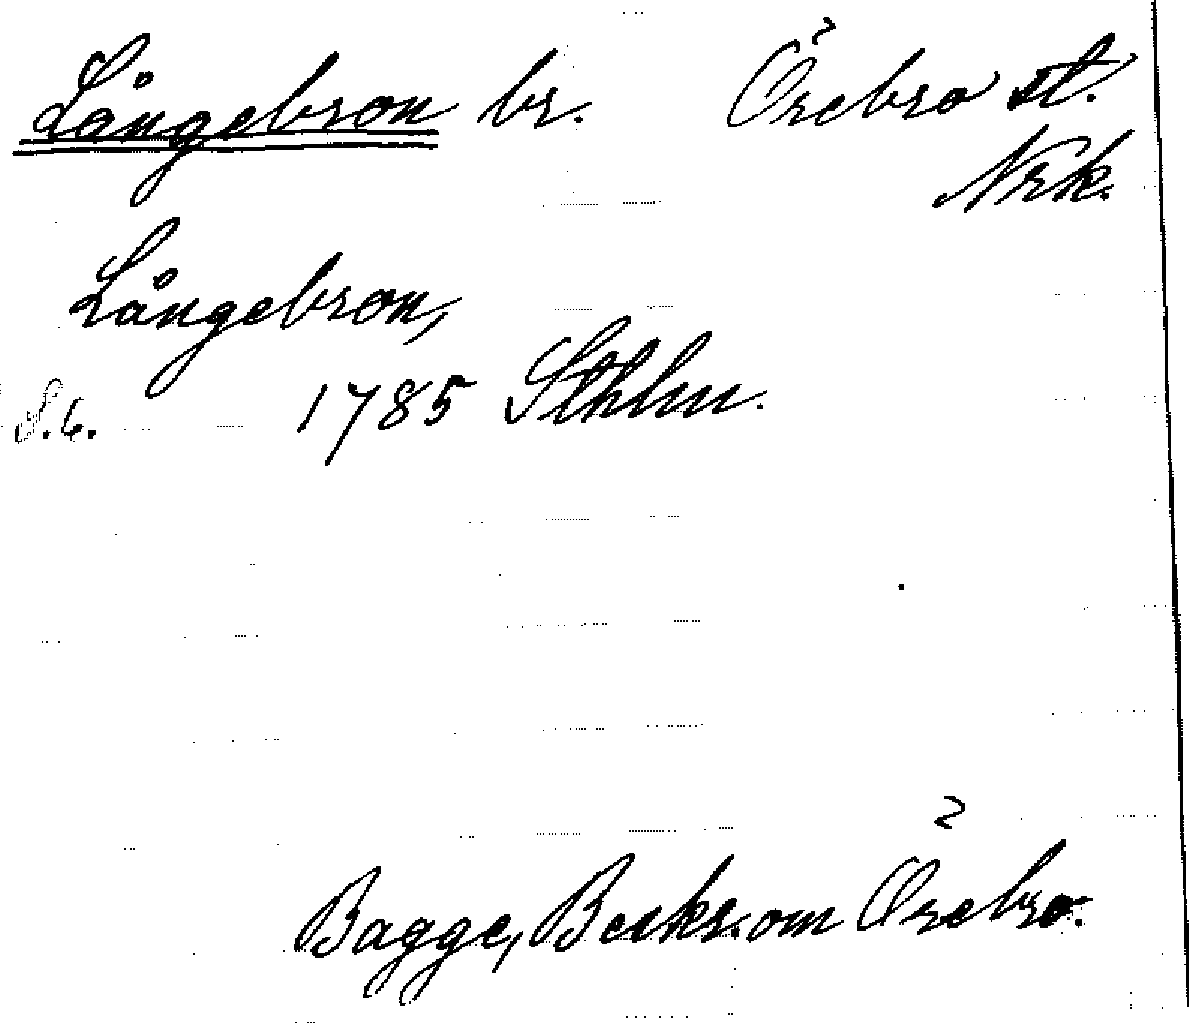 Långebron br. Örebro st.
Nrk.
Långebron,
S. 6. 1785 Sthlm.
Bagge, Beskr. om Örebro.